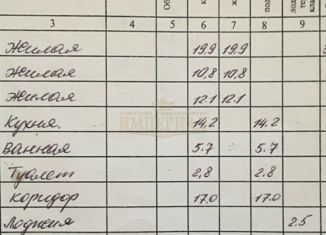 Об
3 4 5 6 7 8 9
Жилая 19,9 19,9
Жилая 10,8 10,8
Жилая 12.1 12.1
ИМПЕРИЯ
Кухня. 14,2 14,2
Ванная 5.7 5.7
Туалет 2,8 2.8
Коридор 17.0 17.0
Лоджия 2.5